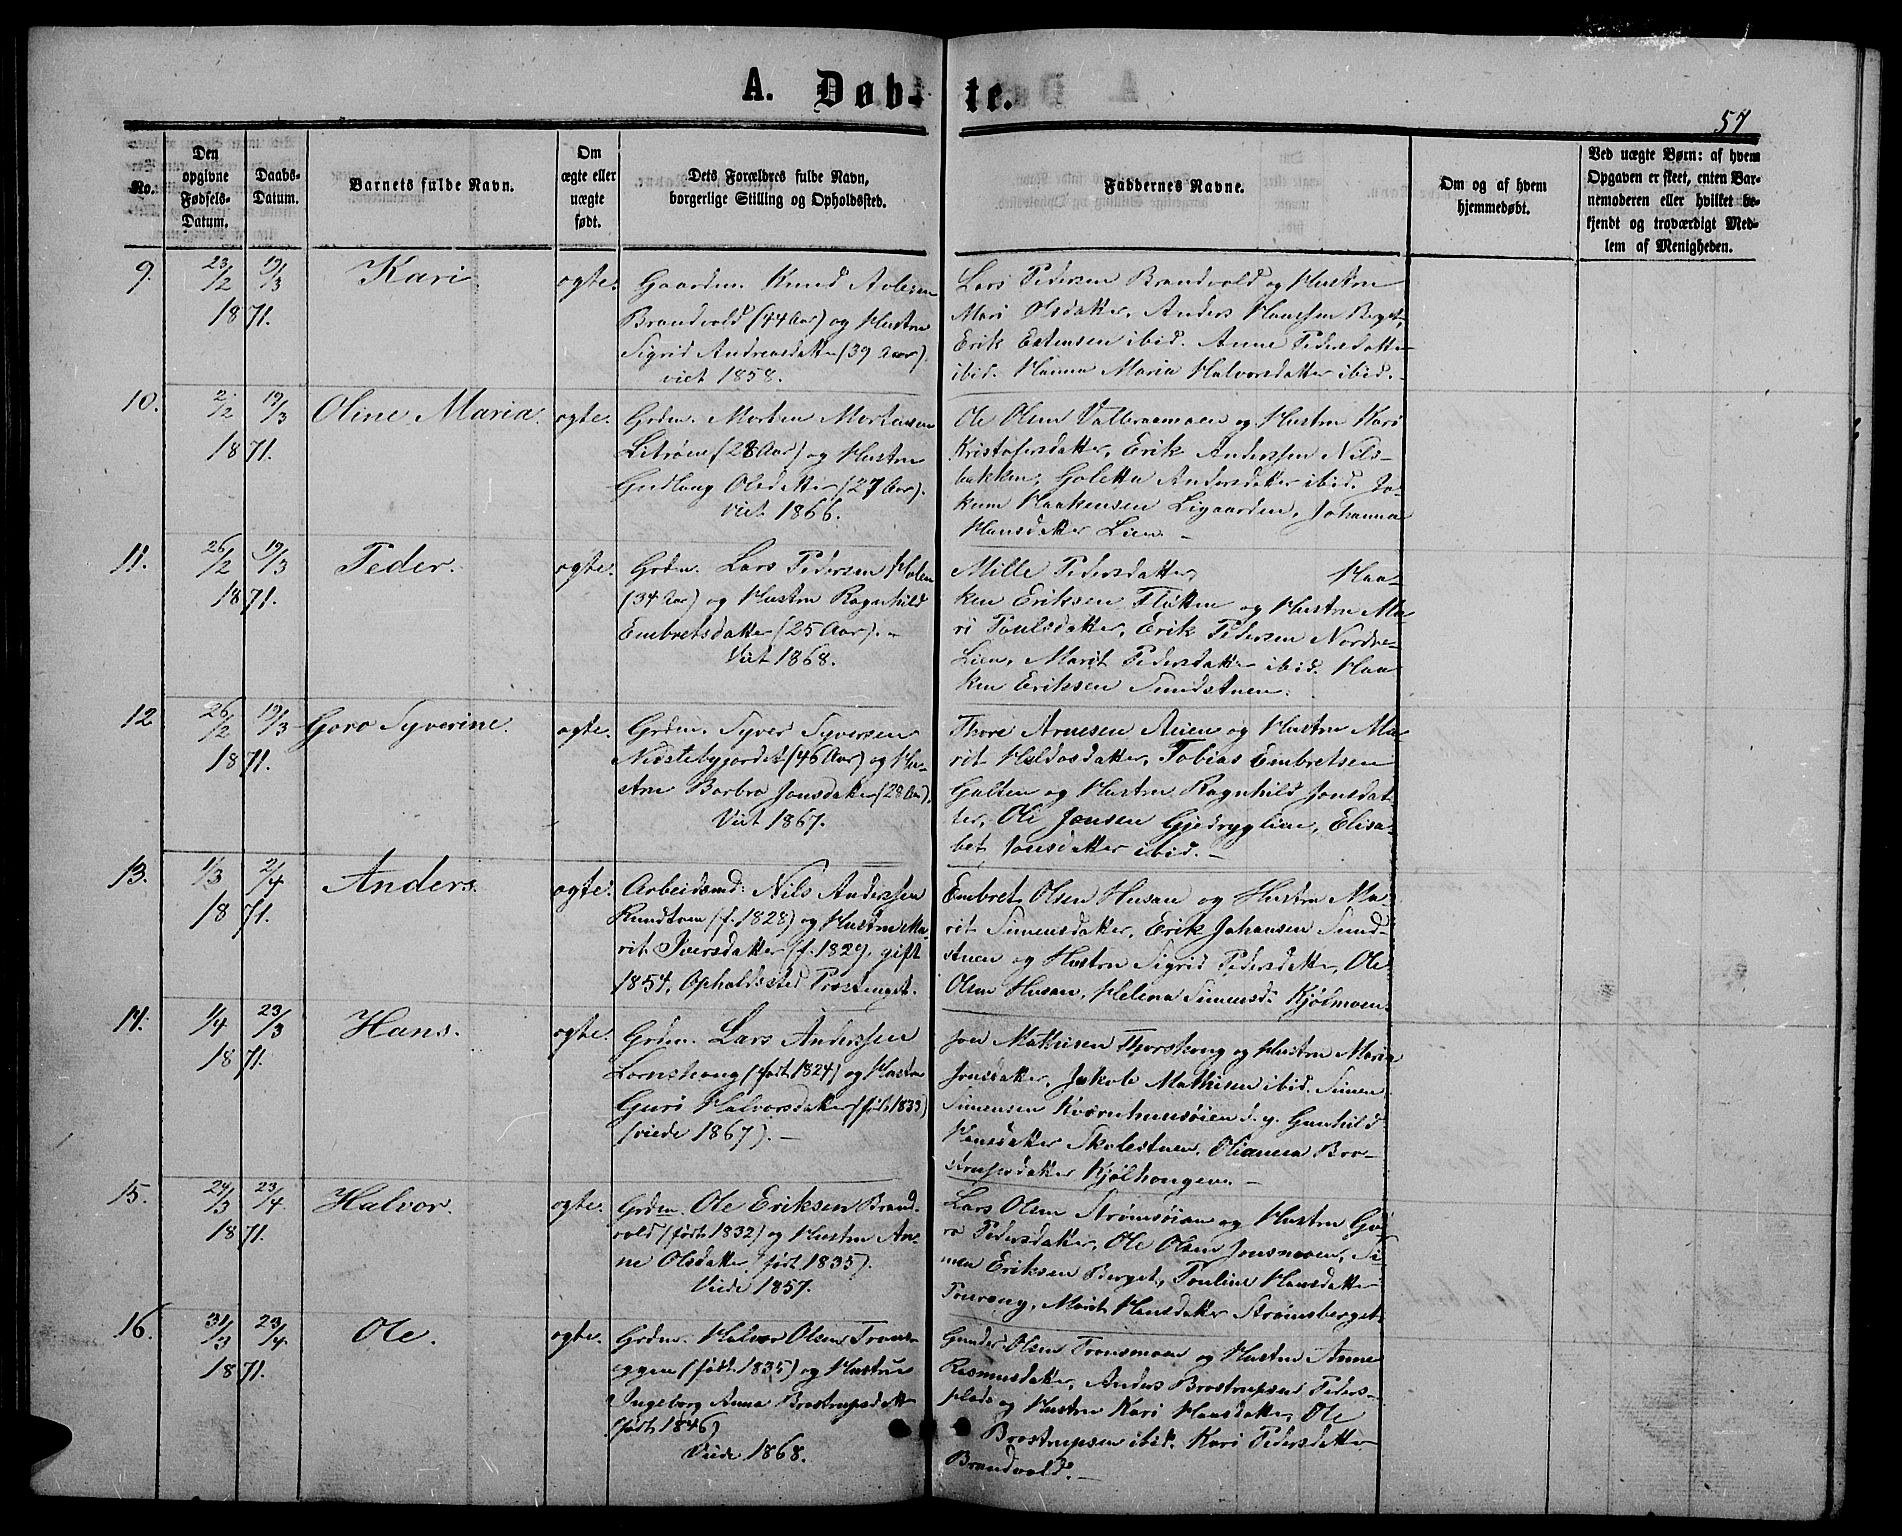 A. Døb-te.
57
No.
Den opgivne Fødsels-Datum.
Daabs-Datum.
Barnets fulde Navn.
Om ægte eller uægte født.
Dets Forældres fulde Navn, borgerlige Stilling og Opholdssted.
Faddernes Navne.
Om og af hvem hjemmedøbt.
Ved uægte Børn: af hvem Opgaven er skeet, enten Barnemoderen eller hvilket bekjendt og troværdigt Medlem af Menigheden.
9. 23/2 19/3 1871. Kari ogte.
Gaardm. Knud
Brandvold (44 Aar) og Hustru
Sigrid Andreasdatter (39 Aar).
viet 1858.
Lars Pedersen Brandvold og Hustru
Mari Olsdatter, Anders Hanssen Berget,
Erik Estensen ibid. Anne Pedersdatter
ibid. Hanna Maria Halvorsdatter ibid.
10. 2/2 19/3 1871. Oline Maria. ogte.
Grdm. Morten Mortensen
(28 Aar) og Hustru
Gudlaug Olsdatter (27 Aar).
Viet 1866.
Ole Olsen og Hustru Kari
Kristofersdatter, Erik Anderssen Nils-
bakken, Goletta Andersdatter ibid. Jo-
kum Haakensen Ligaarden, Johanna
Hansdatter Lien. -
11. 26/2 19/3 1871. Peder. ogte.
Grdm. Lars Pedersen Holen
(34 Aar) og Hustru Ragnhild
Embretsdatter (25 Aar). -
Viet 1868.
Mille Pedersdatter, Haa-
ken Eriksen Fløtten og Hustru Ma-
ri Poulsdatter, Erik Pedersen Nordre-
Lien, Marit Pedersdatter ibid. Haa-
ken Eriksen Sundstuen.
12 26/2 19/3 1871. Goro Syverine. ogte.
Grdm. Syver Syversen
Nedstebygjordet (46 Aar) og Hu-
stru Barbro Jonsdatter (28 Aar).
Viet 1867.
Thore Arnesen Aaen og Hustru Ma-
rit Haldosdatter, Tobias Embretsen
Galten og Hustru Ragnhild Jonsdat-
ter, Ole Jonsen Gjedryglien, Elisa-
bet Jonsdatter ibid. -
13. 1/3 2/4 1871. Anders. ogte.
Arbeidsmd: Nils Anderssen
Rundtom (f. 1828) og Hustru Ma-
rit Iversdatter (f. 1829, gift
1854, Opholdssted Præstenget.
Embret Olsen Husan og Hustru Ma-
rit Simensdatter, Erik Johansen Sund-
stuen og Hustru Sigrid Pedersdatter, Ole
Olsen Husan, Helena Simensd. Kjølmoen.
14. 1/4 23/3 1871. Hans. ogte.
Grdm. Lars Anderssen
(født 1824) og Hustru
Guri Halvorsdatter (født 1833)
(viede 1867). -
Jon Mathisen Thorshaug og Hustru Maria
Jonsdatter, Jakob Mathisen ibid. Simen
Simensen d. y. Gunhild
Hansdatter Skolestuen, Olianna Bro-
strupsdatter Kjølhaugen. -
15. 24/3 23/4 1871. Halvor. ogte.
Grdm. Ole Eriksen Brand-
vold (født 1832) og Hustru An-
ne Olsdatter (født 1835).
Viede 1857.
Lars Olsen Strømsøien og Hustru Gu-
ro Pedersdatter, Ole Olsen Jonsmoen, Si-
men Eriksen Berget, Pouline Hansdatter
Marit Hansdatter Strømsberget.
16. 31/3 23/4 1871. Ole. ogte.
Grdm. Halvor Olsen Trons-
eggen (født 1835) og Hustrue
Ingeborg Anna Brostrupsdatt
(født 1846)
Viede 1868.
Gunder Olsen Tronsmoen og Hustru Anne
Rasmusdatter, Anders Brostrupsen Peders-
plads og Hustru Kari Hansdatter, Ole
Brostrupsen ibid. Kari Pedersdatter
Brandvold. -